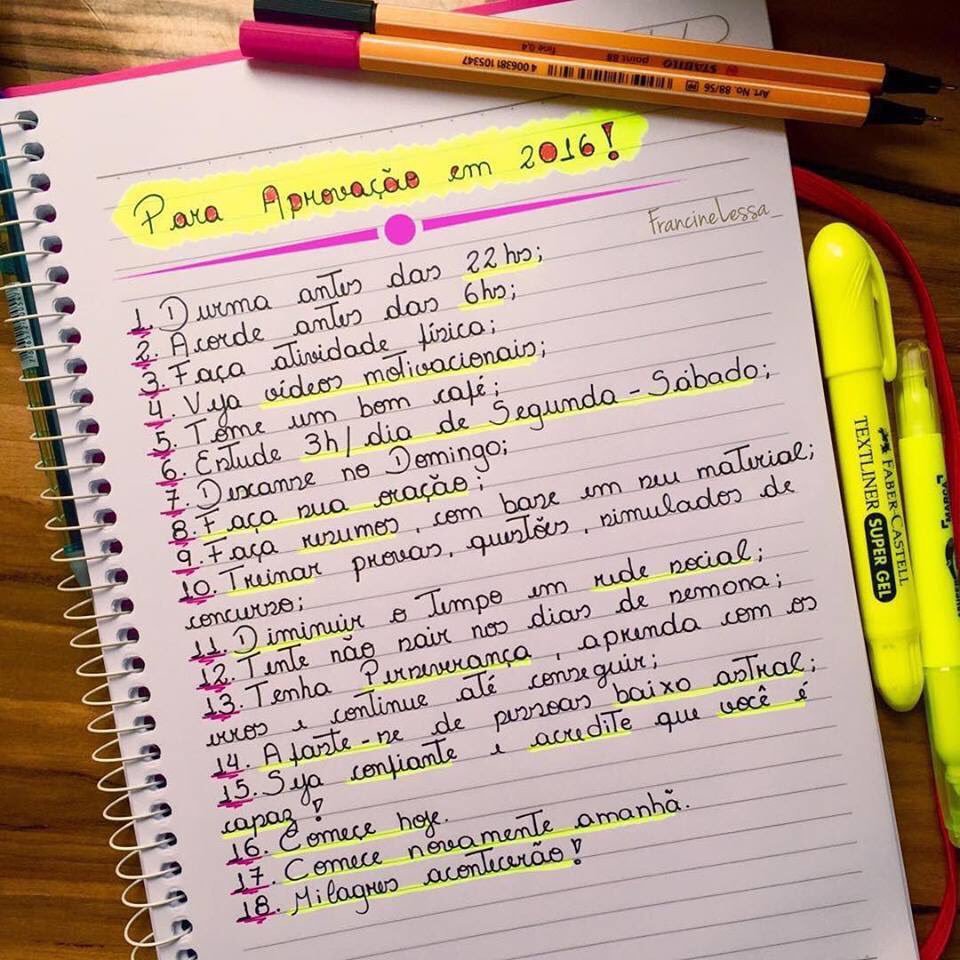 STABILO point 88 fine 0,4
Art. No. 88/56 4 006381 105347
Para Aprovação em 2016!
FrancineLessa_
1. Durma antes das 22 hs;
2. Acorde antes das 6hs;
3. Faça atividade física;
4. Veja vídeos motivacionais;
5. Tome um bom café;
6. Estude 3h/dia de Segunda - Sábado;
7. Descanse no Domingo;
8. Faça sua oração;
9. Faça resumos, com base em seu material;
10. Treinar provas, questões, simulados de
concurso;
11. Diminuir o Tempo em rede social;
12. Tente não sair nos dias de semana;
13. Tenha Perseverança, aprenda com os
erros e continue até conseguir;
14. Afaste-se de pessoas baixo astral;
15. Seja confiante e acredite que você é
capaz!
16. Comece hoje.
17. Comece novamente amanhã.
18. Milagres acontecerão!
FABER-CASTELL
TEXTLINER SUPER GEL